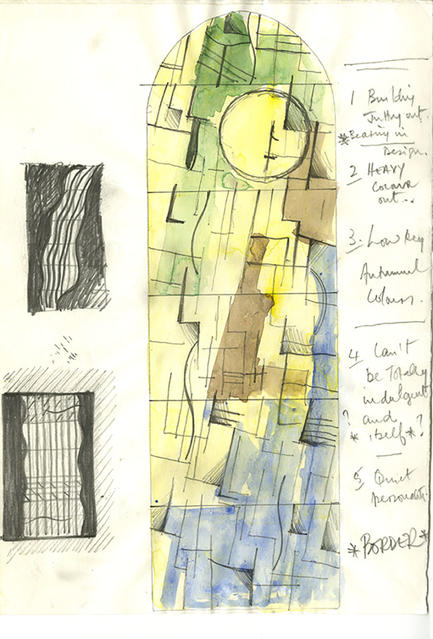 1 Building
Jutting out.
*Bearing in
Design.
2 HEAVY
Colour
out..
3. Low Key
Autumnal
Colours.
4 Can't
be Totally
indulgent
? and
* itself * ?
5 Quiet
personality.
*BORDER*